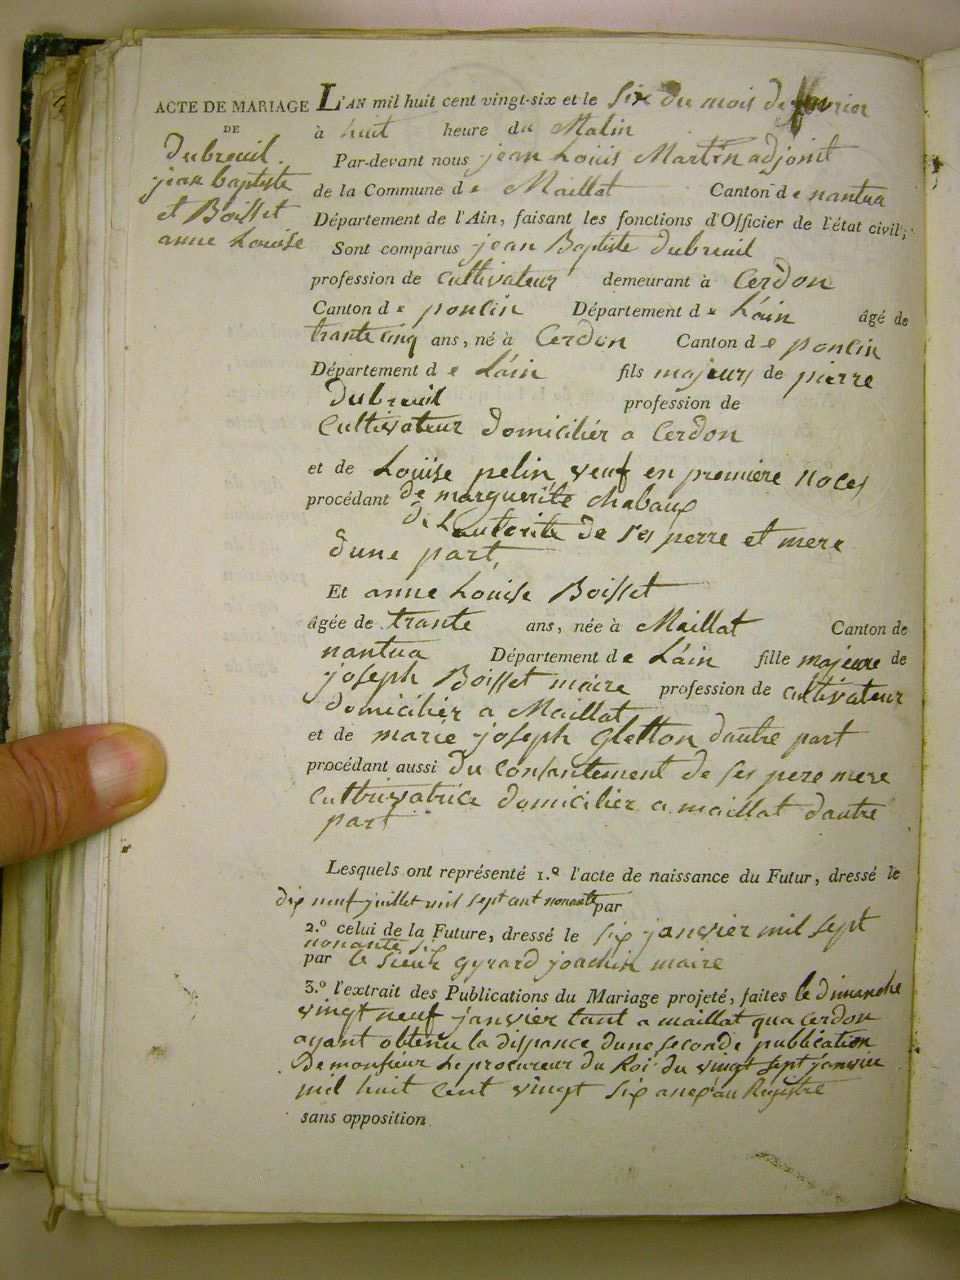 ACTE DE MARIAGE
DE
Dubreuil
jean baptiste
et Boisset
anne Louise
L'AN mil huit cent vingt-six et le six du mois de fevrier
à huit heure du Matin
Par-devant nous jean Louis Martin adjoint
de la Commune de Maillat Canton de nantua
Département de l'Ain, faisant les fonctions d'Officier de l'état civil,
Sont comparus jean Baptiste dubreuil
profession de cultivateur demeurant à Cerdon
Canton de poncin Département de L'ain âgé de
trante cinq ans, né à Cerdon Canton de poncin
Département de L'ain fils majeurs de pierre
dubreuil profession de
Cultivateur domiciliér a Cerdon
et de Louise pelin, veuf en premiere noces
procédant de marguerite Chabaux
de Lautorite de ses perre et mere
dune part,
Et anne Louise Boisset
âgée de trante ans, née à Maillat Canton de
nantua Département de L'ain fille majeure de
joseph Boisset maire profession de cultivateur
domiciliér a Maillat
et de marie joseph gletton dautre part
procédant aussi du consantement de ses pere mere
Cultivatrice domicilier a maillat dautre
part
Lesquels ont représenté 1.º l'acte de naissance du Futur, dressé le
dix neuf juillet mil sept cent nonante par
2.º celui de la Future, dressé le six janvier mil sept
nonante six
par le sieur gyrard joachin maire
3.º l'extrait des Publications du Mariage projeté, faites le dimanche
vingt neuf janvier tant a maillat qua cerdon
ayant obtenu la dispance dune seconde publication
De monsieur Le procureur du Roi du vingt sept janvier
mil huit cent vingt six anex au Registre
sans opposition